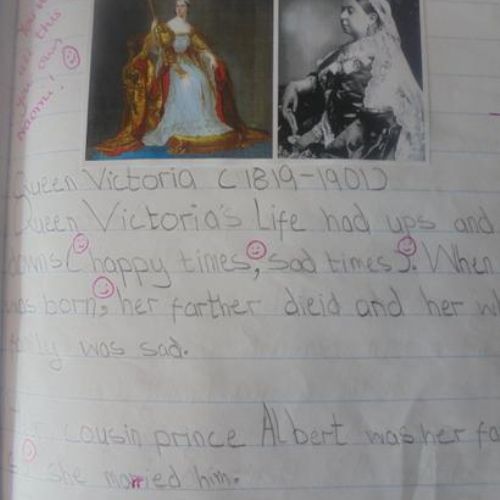 you own
Queen Victoria (1819-1901)
Queen Victoria's Life had ups and
downs (happy times, sad times). When
was born, her farther dieid and her
family was sad.
cousin prince Albert was her
she married him.